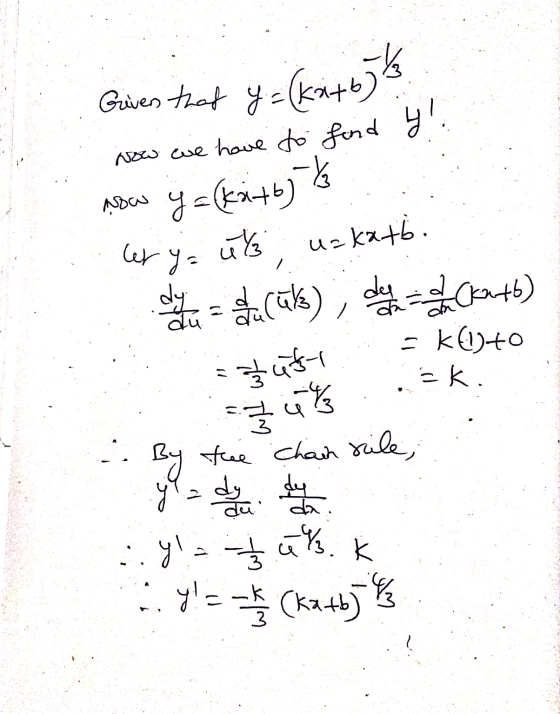 Given that y = (kx+b)^{-1/3}
Now we have to find y'.
Now y = (kx+b)^{-1/3}
let y = u^{-1/3}, u = kx+b.
dy/du = d/du (u^{-1/3}), dy/dx = d/dx (kx+b)
= -1/3 u^{-1/3-1} = k(1)+0
= -1/3 u^{-4/3} = k.
∴ By the chain rule,
y' = dy/du . dy/dx.
∴ y' = -1/3 u^{-4/3}. k
∴ y' = -k/3 (kx+b)^{-4/3}